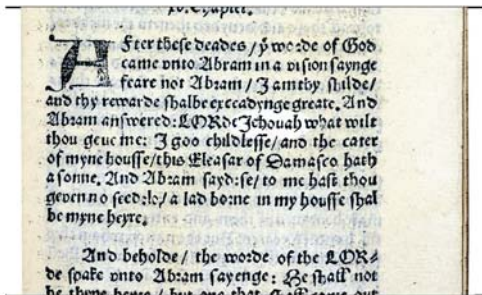 xv. Chapter.
After these deades / ẏ worde of God
came vnto Abram in a vision saynge
feare not Abram / I am thy shilde /
and thy rewarde shalbe exceadynge greate. And
Abram answered: LORde Jehouah what wilt
thou geue me: I goo childlesse / and the cater
of myne housse / this Eleasar of Damasco hath
a sonne. And Abram sayd: se / to me hast thou
geven no seed: lo / a lad borne in my housse shal
be myne heyre.
And beholde / the worde of the LOR⸗
de spake vnto Abram sayenge: He shall not
be thyne heyre / but one that shall come out